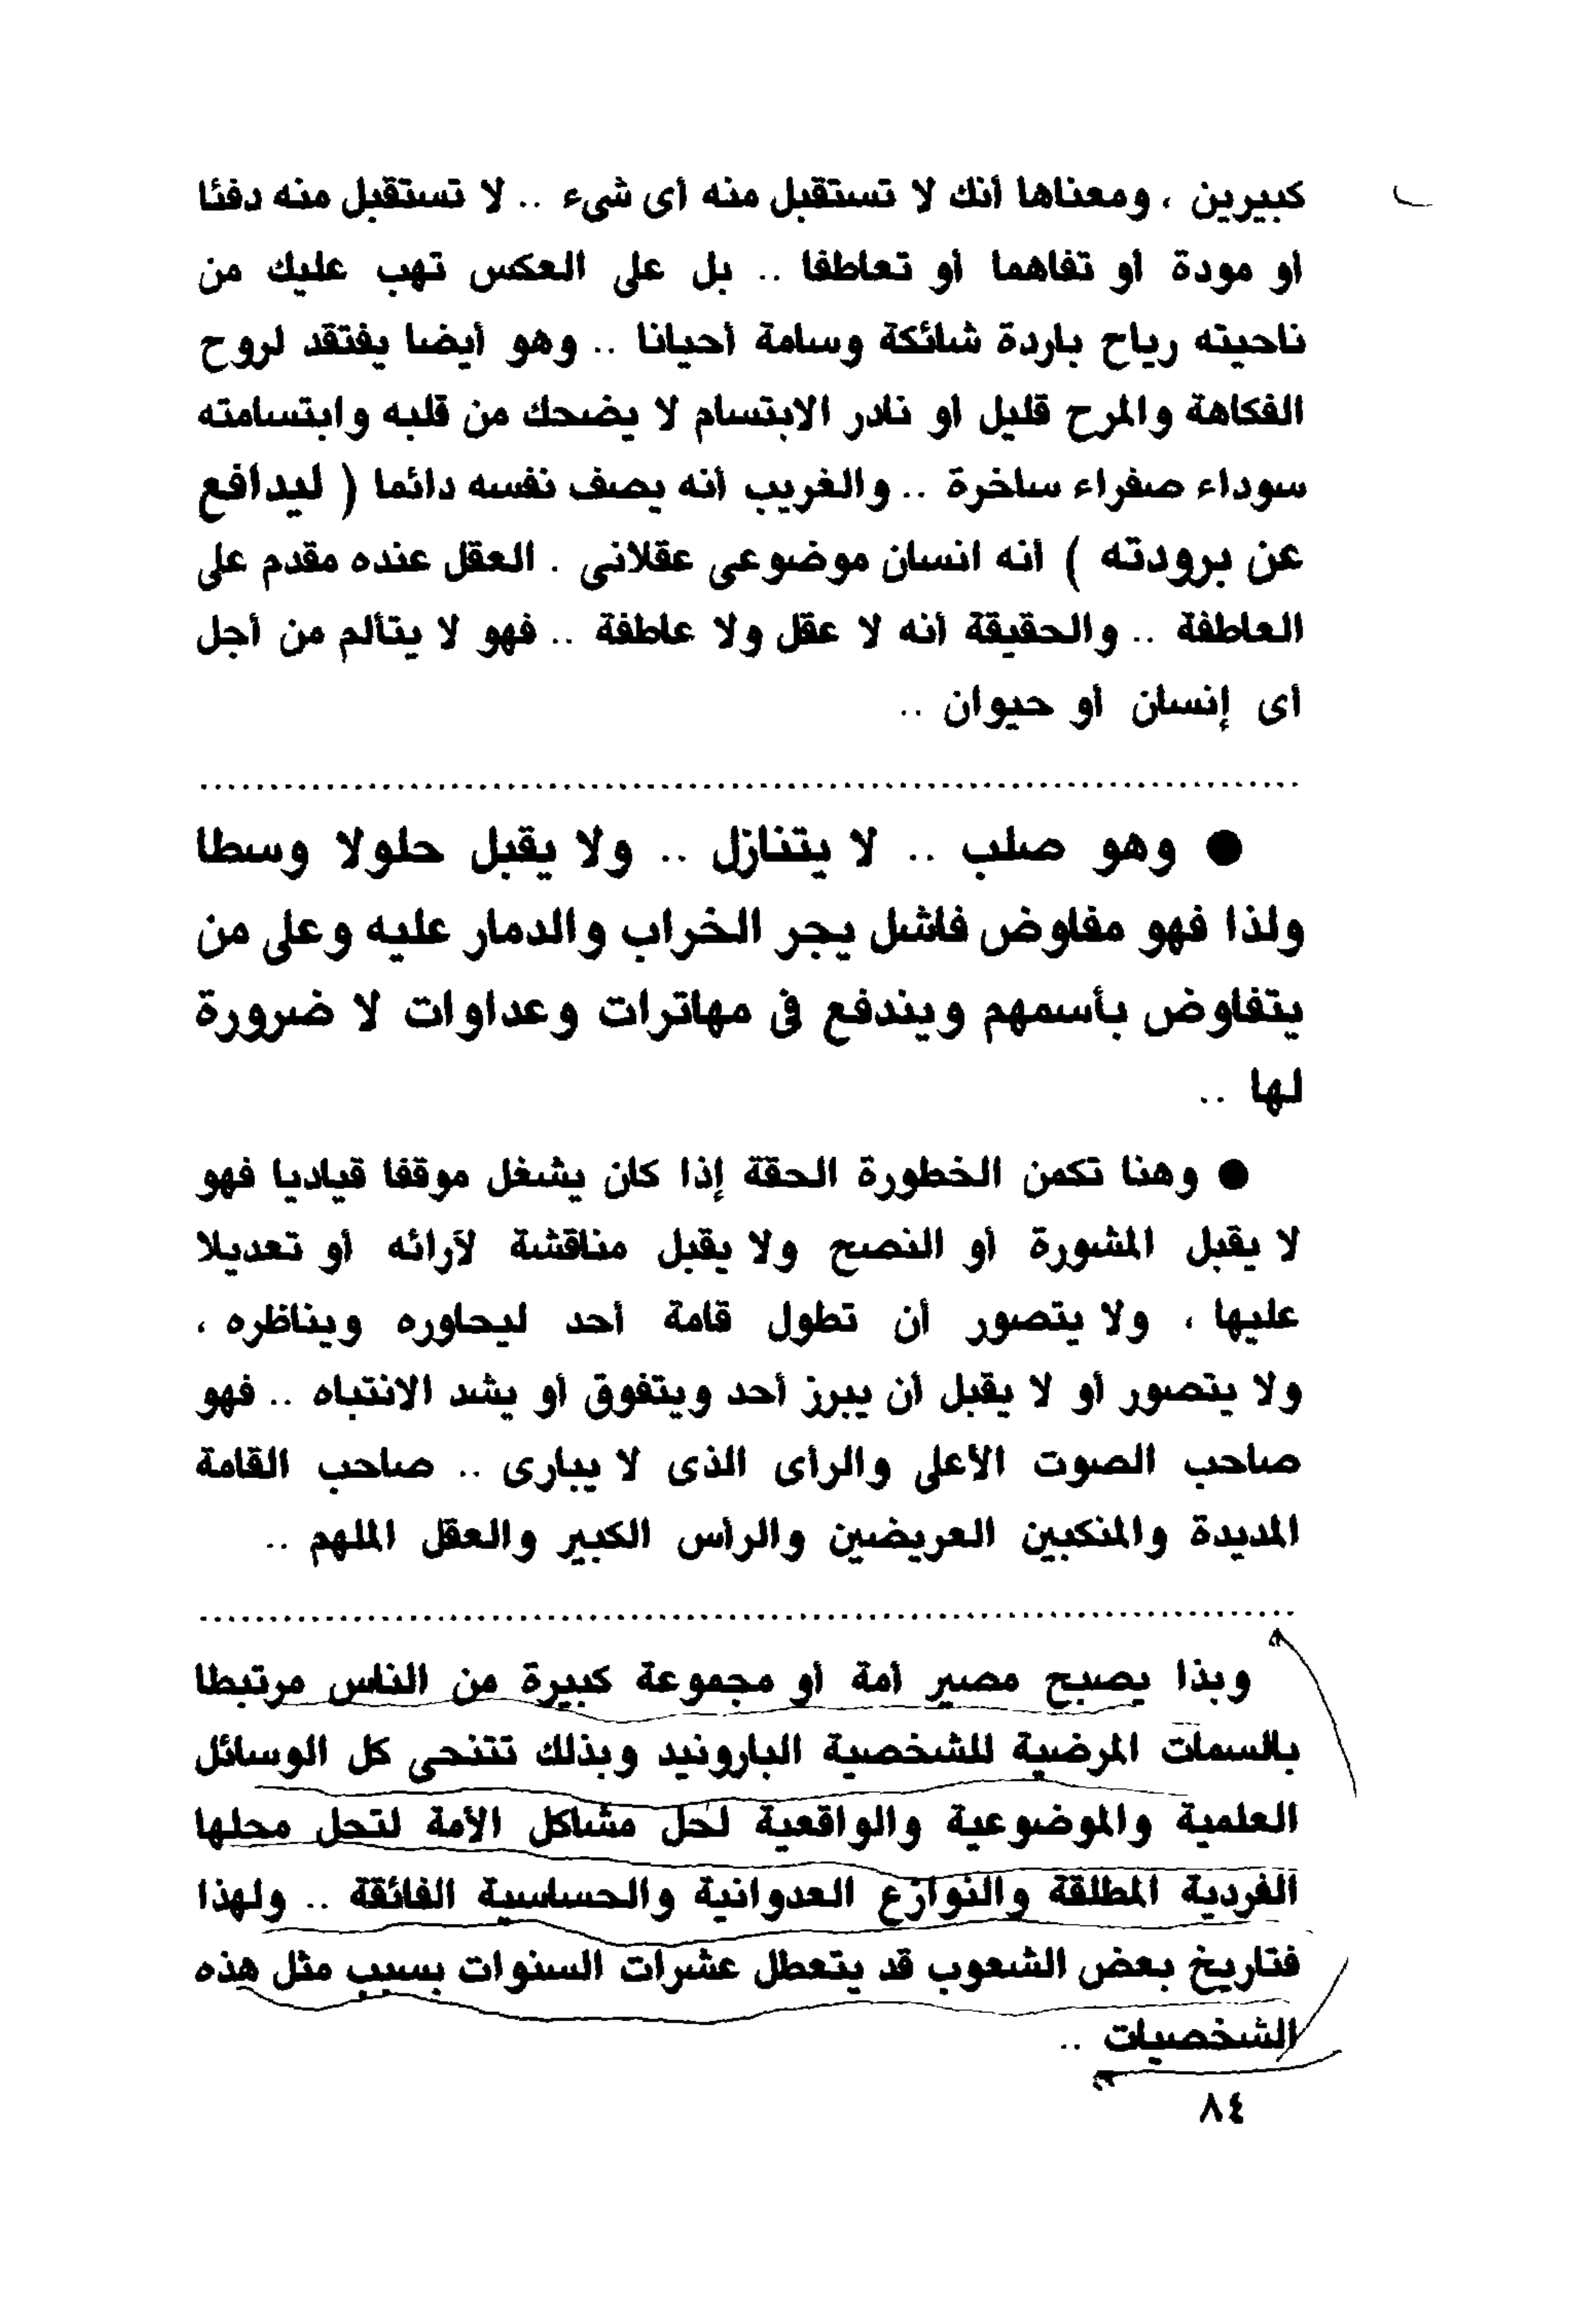 كبيرين ، ومعناها أنك لا تستقبل منه أى شىء .. لا تستقبل منه دفئا
أو مودة أو تفاهما أو تعاطفا .. بل على العكس تهب عليك من
ناحيته رياح باردة شائكة وسامة أحيانا .. وهو أيضا يفتقد لروح
الفكاهة والمرح قليل او نادر الابتسام لا يضحك من قلبه وابتسامته
سوداء صفراء ساخرة .. والغريب أنه يصف نفسه دائما ( ليدافع
عن برودته ) أنه انسان موضوعى عقلانى . العقل عنده مقدم على
العاطفة .. والحقيقة أنه لا عقل ولا عاطفة .. فهو لا يتألم من أجل
أى إنسان أو حيوان ..
● وهو صلب .. لا يتنازل .. ولا يقبل حلولا وسطا
ولذا فهو مفاوض فاشل يجر الخراب والدمار عليه وعلى من
يتفاوض بأسمهم ويندفع فى مهاترات وعداوات لا ضرورة
لها ..
● وهنا تكمن الخطورة الحقة إذا كان يشغل موقفا قياديا فهو
لا يقبل المشورة أو النصح ولا يقبل مناقشة لآرائه أو تعديلا
عليها ، ولا يتصور أن تطول قامة أحد ليحاوره ويناظره ،
ولا يتصور أو لا يقبل أن يبرز أحد ويتفوق أو يشد الانتباه .. فهو
صاحب الصوت الأعلى والرأى الذى لا يبارى .. صاحب القامة
المديدة والمنكبين العريضين والرأس الكبير والعقل الملهم ..
وبذا يصبح مصير أمة أو مجموعة كبيرة من الناس مرتبطا
بالسمات المرضية للشخصية البارونيد وبذلك تتنحى كل الوسائل
العلمية والموضوعية والواقعية لحل مشاكل الأمة لتحل محلها
الفردية المطلقة والنوازع العدوانية والحساسية الفائقة .. ولهذا
فتاريخ بعض الشعوب قد يتعطل عشرات السنوات بسبب مثل هذه
الشخصيات ..
٨٤